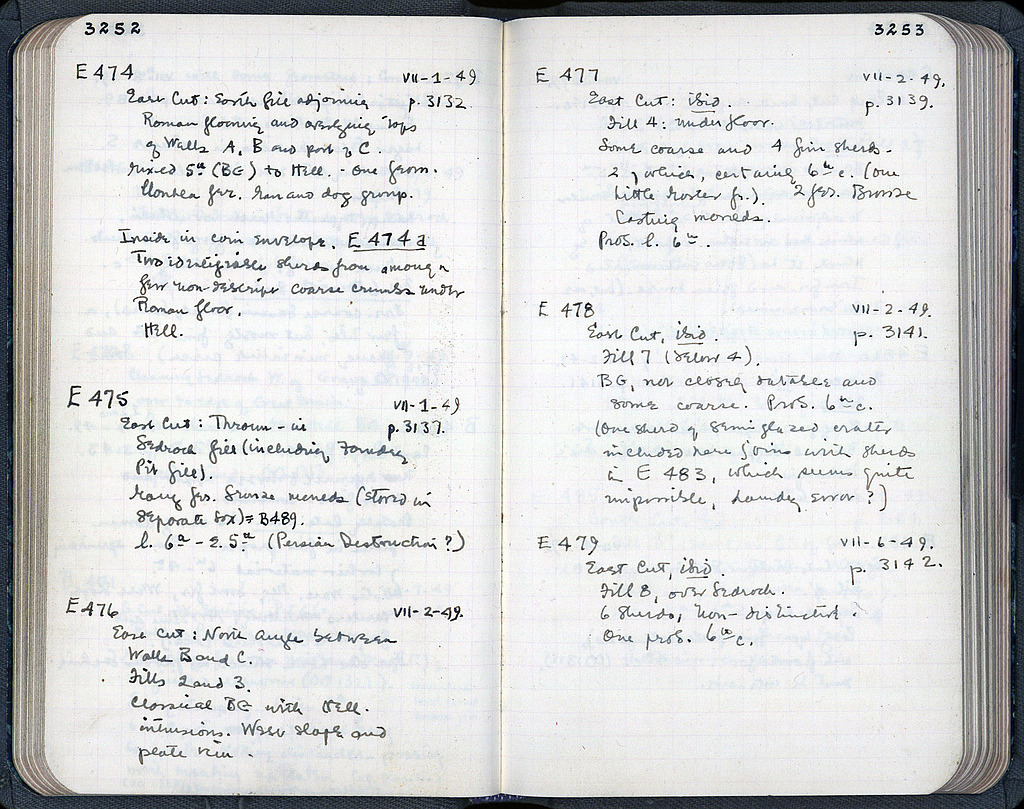 3252
E 474 VII-1-49.
East Cut: Earth fill adjoining p. 3132.
Roman flooring and overlying tops
of Walls A, B and part of C.
Mixed 5th (BG) to Hell. - One frgm.
fgr. Man and dog group.
Inside in coin envelope. E 474 a
Two intelligible sherds from among a
few non-descript coarse crumbs under
Roman floor.
Hell.
E 475 VII-1-49
East Cut: Thrown-in p. 3137.
Bedrock fill (including Foundry
Pit fill).
Many frs. bronze moulds (stored in
separate box) = B489.
l. 6th - e. 5th (Persian Destruction?)
E 476 VII-2-49.
East Cut: North angle between
Walls B and C.
Fills 2 and 3.
Classical BG with Hell.
intrusions. West slope and
plate rim.
3253
E 477 VII-2-49.
East Cut: ibid. p. 3139.
Fill 4: under floor.
Some coarse and 4 fine sherds.
2 of which, certainly 6th c. (one
little Master fr.). 2 frs. Bronze
Casting moulds.
Prob. l. 6th.
E 478 VII-2-49.
East Cut, ibid. p. 3141.
Fill 7 (below 4).
BG, not closely datable and
some coarse. Prob. 6th c.
(One sherd of semiglazed krater
included here joins with sherds
in E 483, which seems quite
impossible, laundry error?)
E 479 VII-6-49.
East Cut, ibid p. 3142.
Fill 8, over bedrock.
6 sherds, non-distinctive
One prob. 6th c.